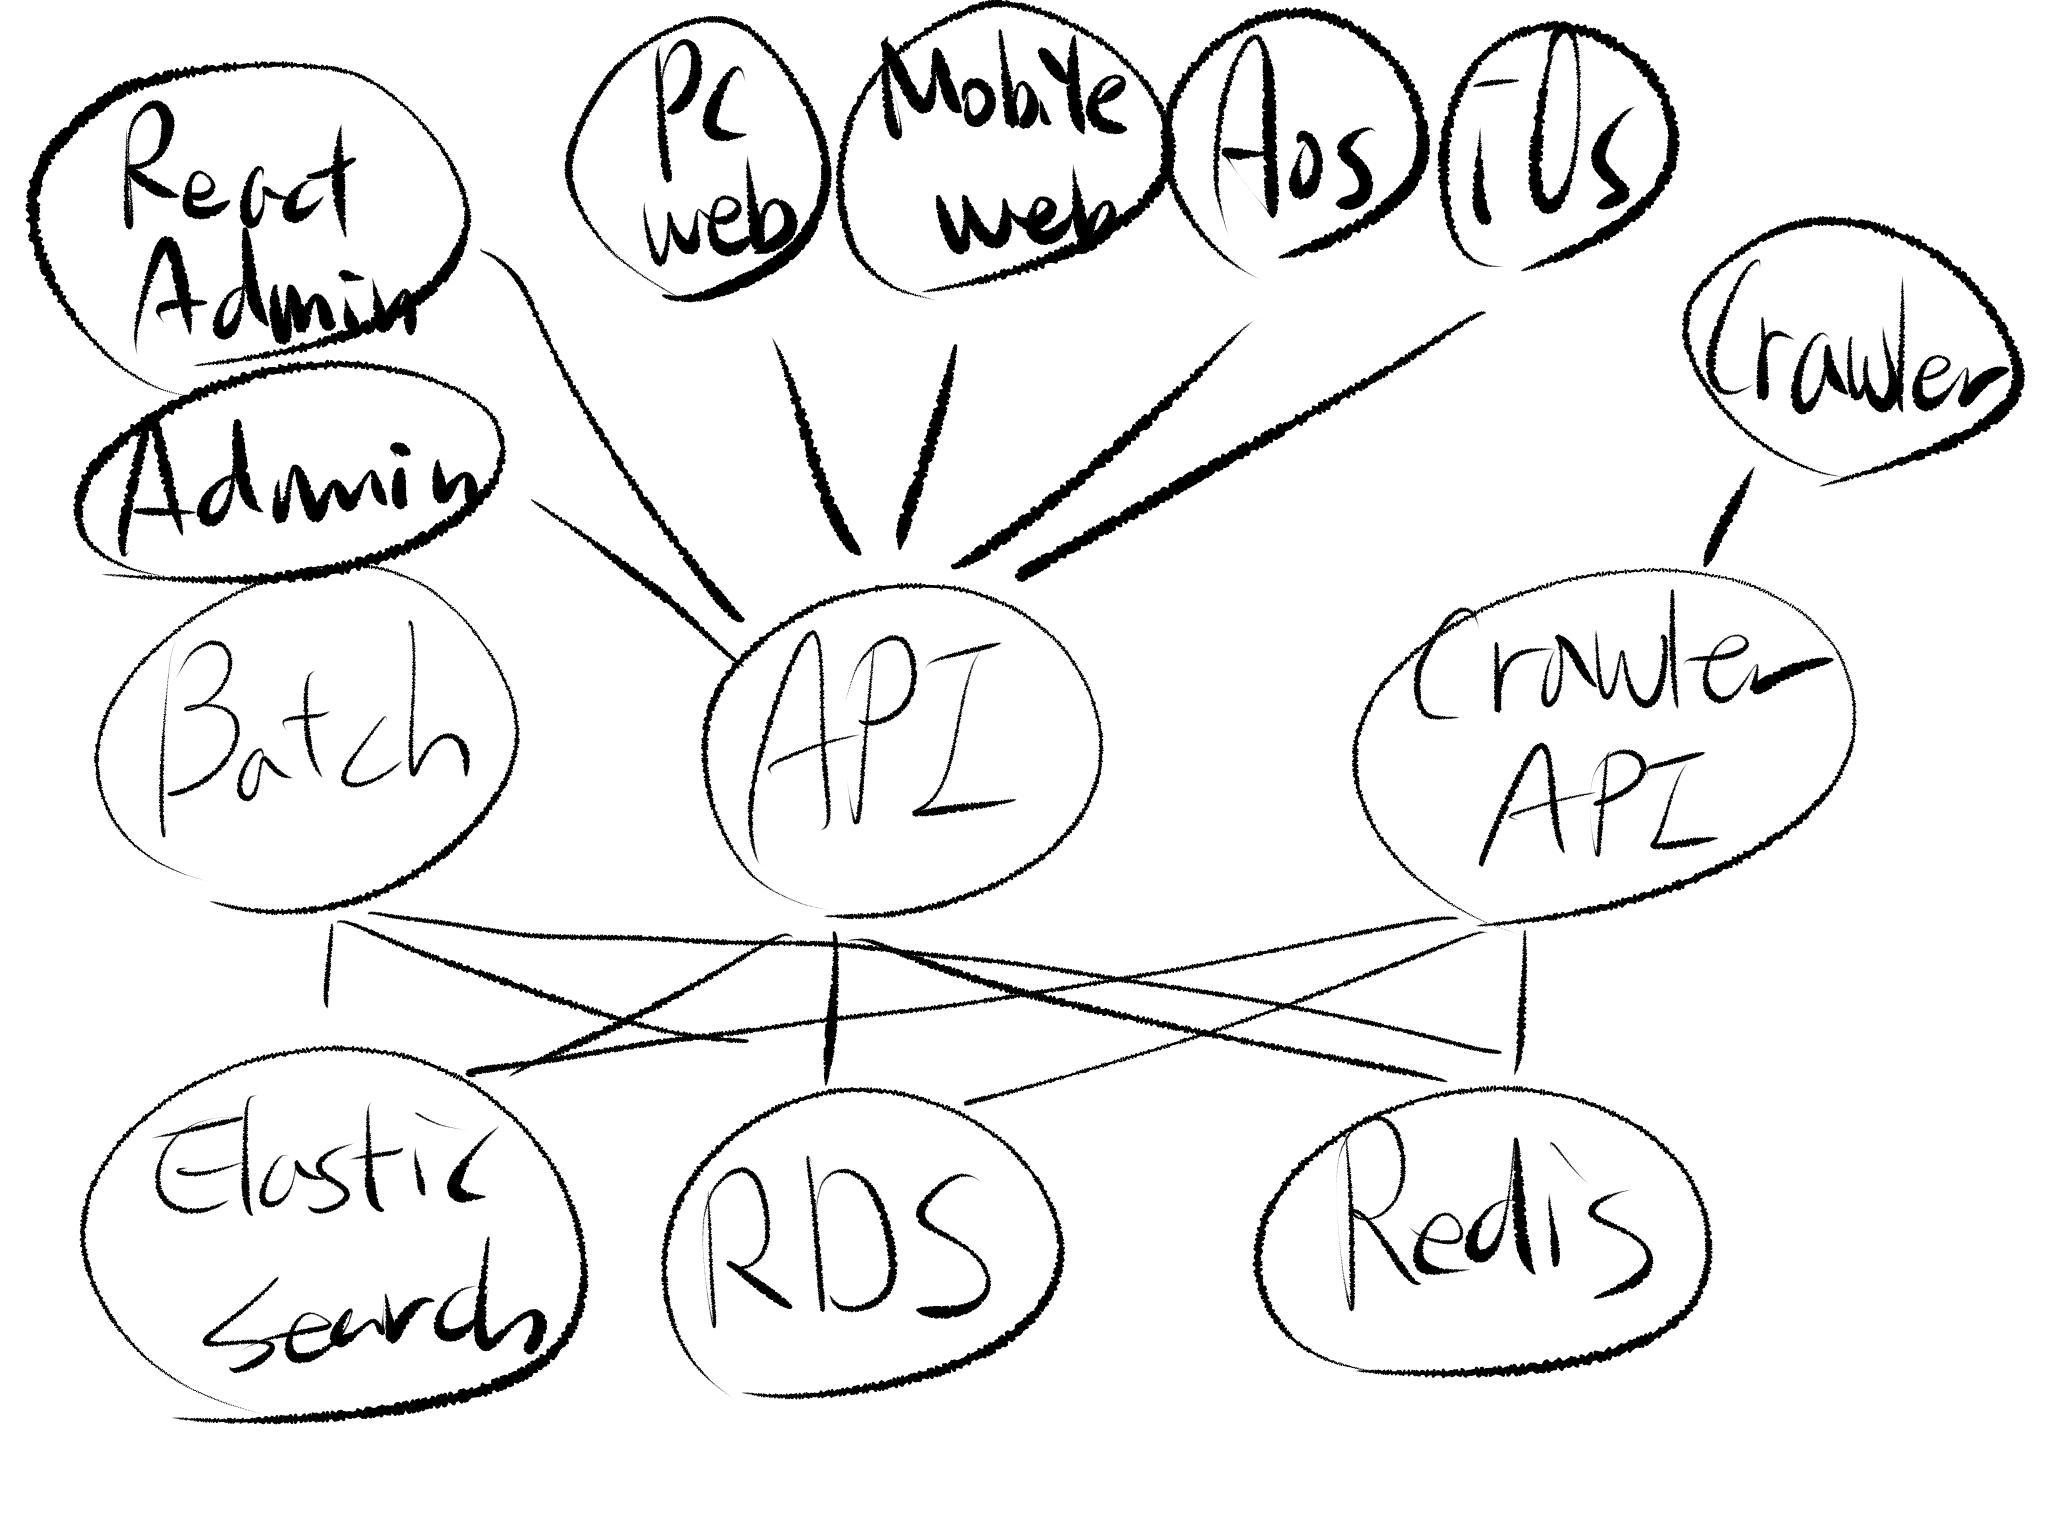 React
Admin
PC
web
Mobile
web
Aos
iOs
Crawler
Admin
Batch
API
Crawler
API
Elastic
search
RDS
Redis